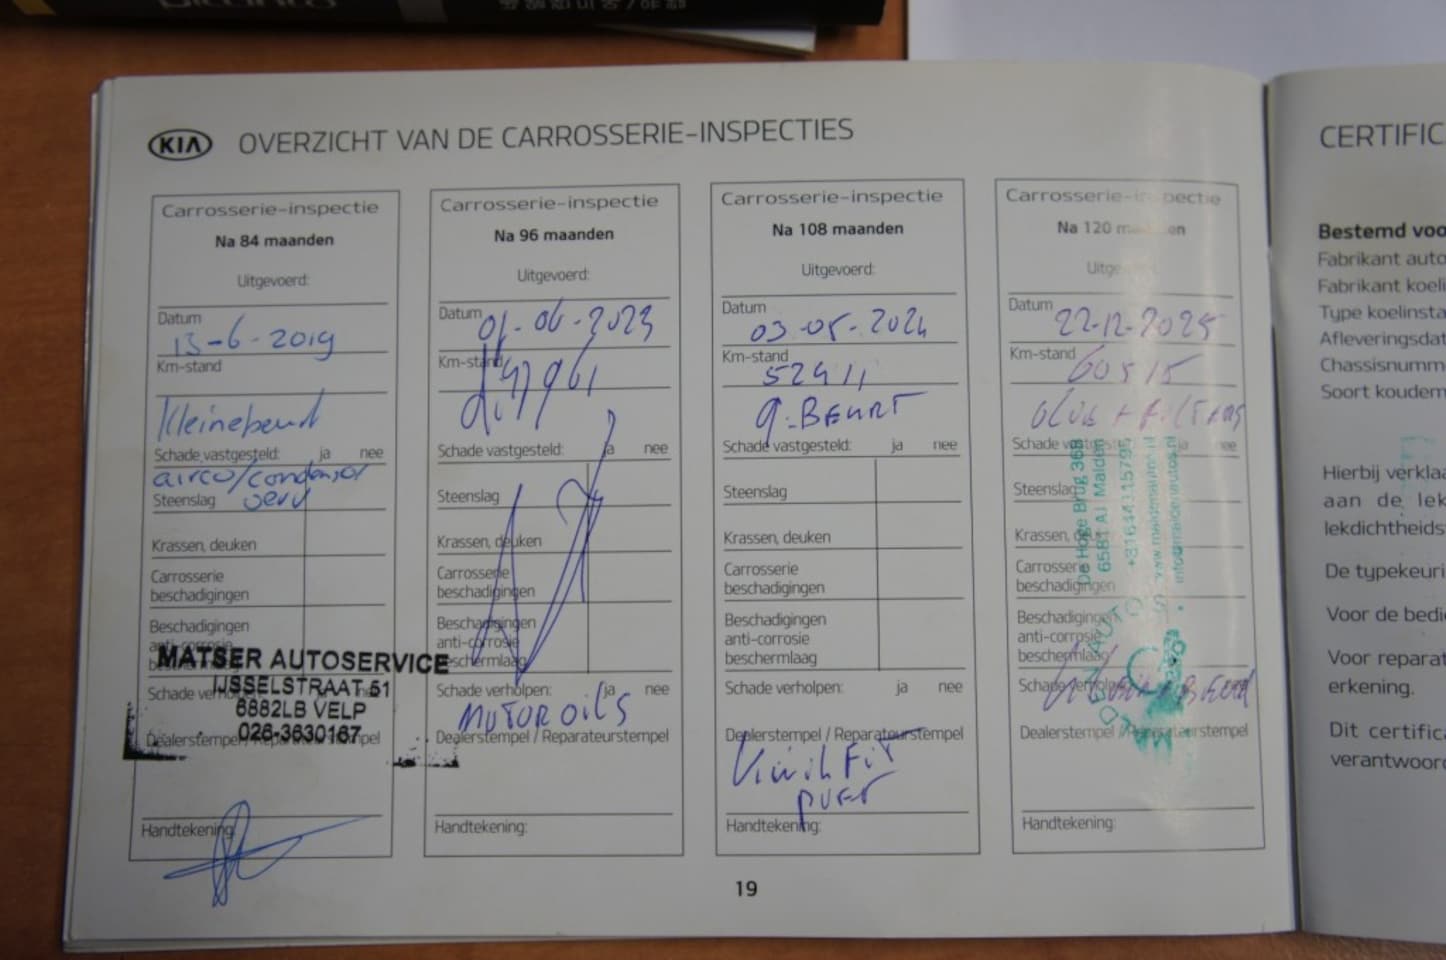 Picanto
KIA
OVERZICHT VAN DE CARROSSERIE-INSPECTIES
Carrosserie-inspectie
Na 84 maanden
Uitgevoerd:
Datum
13-6-2019
Km-stand
Kleinebeurt
Schade vastgesteld: ja nee
airco/condensor
Steenslag
serv
Krassen, deuken
Carrosserie
beschadigingen
Beschadigingen
anti-corrosie
MATSER AUTOSERVICE
IJSSELSTRAAT 51
6882LB VELP
026-3630167
Schade verholpen: nee
Dealerstempel / Reparateurstempel
Handtekening:
Carrosserie-inspectie
Na 96 maanden
Uitgevoerd:
Datum
01-06-2023
Km-stand
Schade vastgesteld: ja nee
Steenslag
Krassen, deuken
Carrosserie
beschadigingen
Beschadigingen
anti-corrosie
beschermlaag
Schade verholpen: ja nee
MOTOR OILS
Dealerstempel / Reparateurstempel
Handtekening:
Carrosserie-inspectie
Na 108 maanden
Uitgevoerd:
Datum
03-05-2024
Km-stand
52911
g. BEURT
Schade vastgesteld: ja nee
Steenslag
Krassen, deuken
Carrosserie
beschadigingen
Beschadigingen
anti-corrosie
beschermlaag
Schade verholpen: ja nee
Dealerstempel / Reparateurstempel
KwikFit
Handtekening:
Carrosserie-inspectie
Na 120 maanden
Uitgevoerd:
Datum
22-12-2025
Km-stand
60515
Schade vastgesteld: ja nee
Steenslag
Krassen, deuken
Carrosserie
beschadigingen
Beschadigingen
anti-corrosie
beschermlaag
De Hoge Brug 36B
6581 AJ Malden
Schade verholpen:
Dealerstempel / Reparateurstempel
Handtekening:
19
CERTIFIC
Bestemd voo
Fabrikant auto
Fabrikant koeli
Type koelinsta
Afleveringsdat
Chassisnumm
Soort koudem
Hierbij verklaa
aan de lek
lekdichtheids
De typekeuri
Voor de bedi
Voor reparat
erkening.
Dit certifica
verantwoord